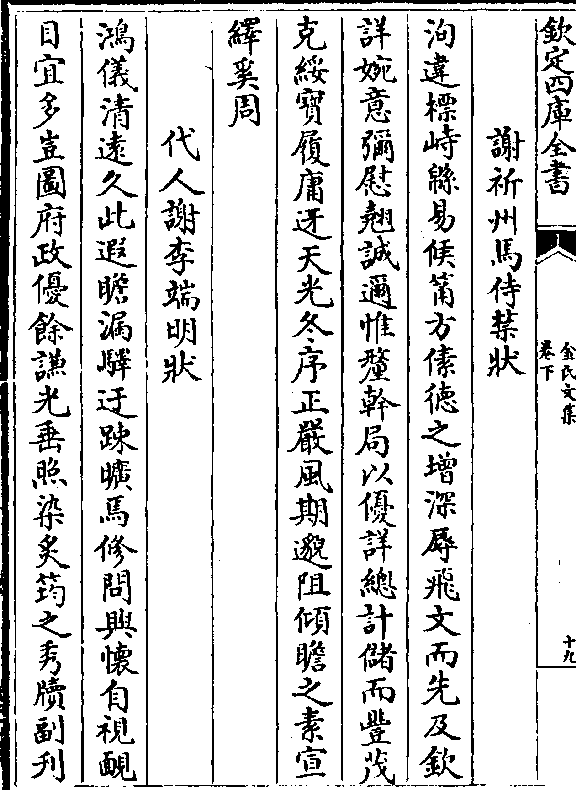 欽定四庫全書
金氏文集
卷下
十九
謝祈州馬侍禁狀
洵違標峙緜易𠋫莆方傃徳之增深辱飛文而先及欽
詳婉意彌慰翹誠邇惟釐幹局以優詳總計儲而豐茂
克綏寶履庸迓天光冬序正嚴風期邈阻傾瞻之素宣
繹奚周
代人謝李端明狀
鴻儀清逺久此遐瞻漏驛迂踈曠焉修問興懐自視靦
目宜多豈圖府政優餘謙光垂照染炙筠之秀牘副刋